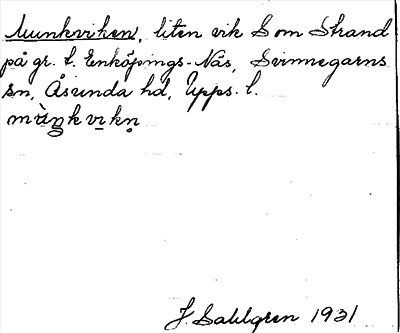 Munkviken, liten vik S om Strand
på gr. t. Enköpings-Näs, Svinnegarns
sn, Åsunda hd, Upps. l.
mùŋkvikn̥
J. Sahlgren 1931